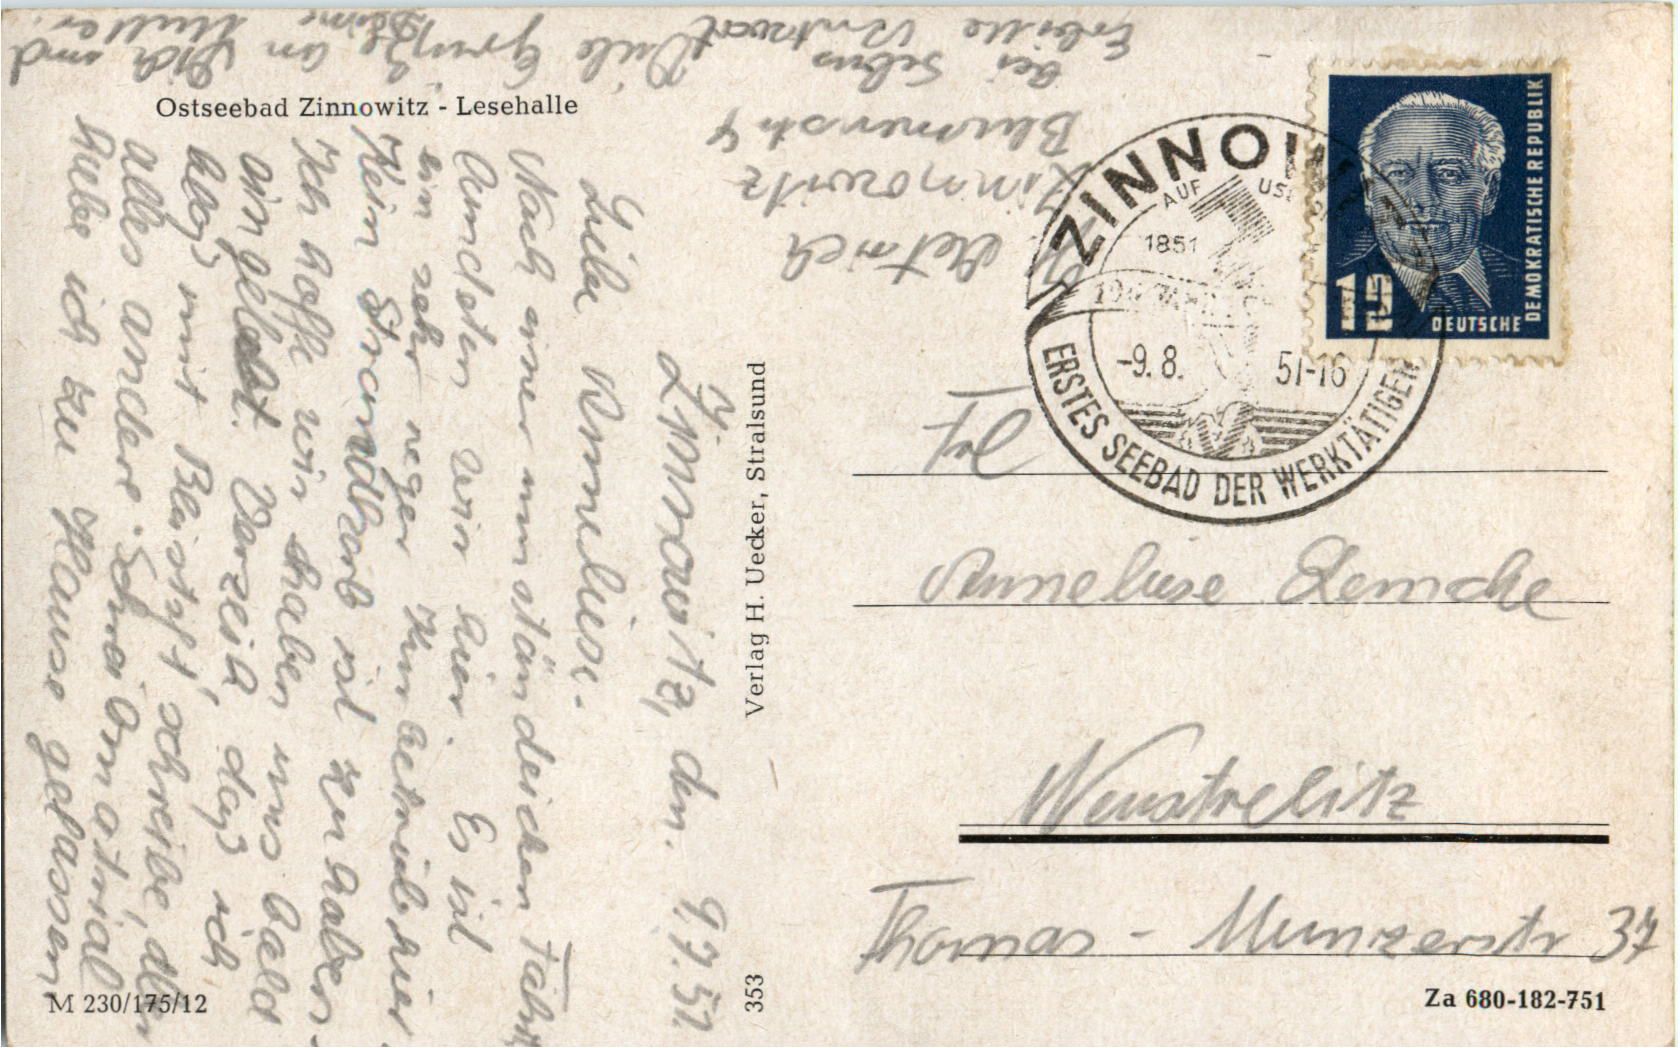 Ostseebad Zinnowitz - Lesehalle
Zinnowitz, den. 9.7.51
Liebe Annelise.
Nach einer umständlichen Fahrt
landeten wir hier. Es ist
ein sehr reger Kurbetrieb hier
Kein Strandkorb ist zu haben.
Ich hoffe wir haben uns bald
eingelebt. Verzeih daß ich
blos mit Bleistift schreibe, denn
alles andere Schreibmatrial
habe ich zu Hause gelassen.
Viele Grüße an Dich und
Deine Mutter.
Erbitte Antwort
bei
Zinnowitz
Blumenstr 4
Verlag H. Uecker, Stralsund
353
M 230/175/12
ZINNOWITZ
AUF USEDOM
1851
-9.8. 51-16
ERSTES SEEBAD DER WERKTÄTIGEN
12
DEUTSCHE
DEMOKRATISCHE REPUBLIK
Frl
Anneliese Lemcke
Neustrelitz
Thomas - Munzerstr 37
Za 680-182-751